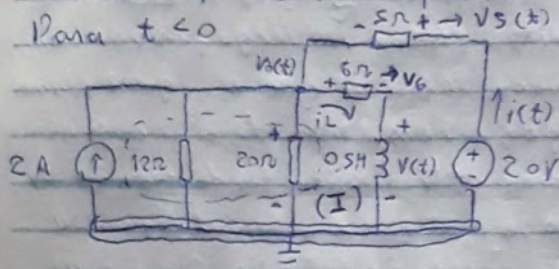 Para t < 0
- 5Ω + → V5(t)
6Ω → V6
+ -
iL
i(t)
2A
12Ω
+
20Ω
-
0.5H
+
V(t)
-
+
-
20V
(I)